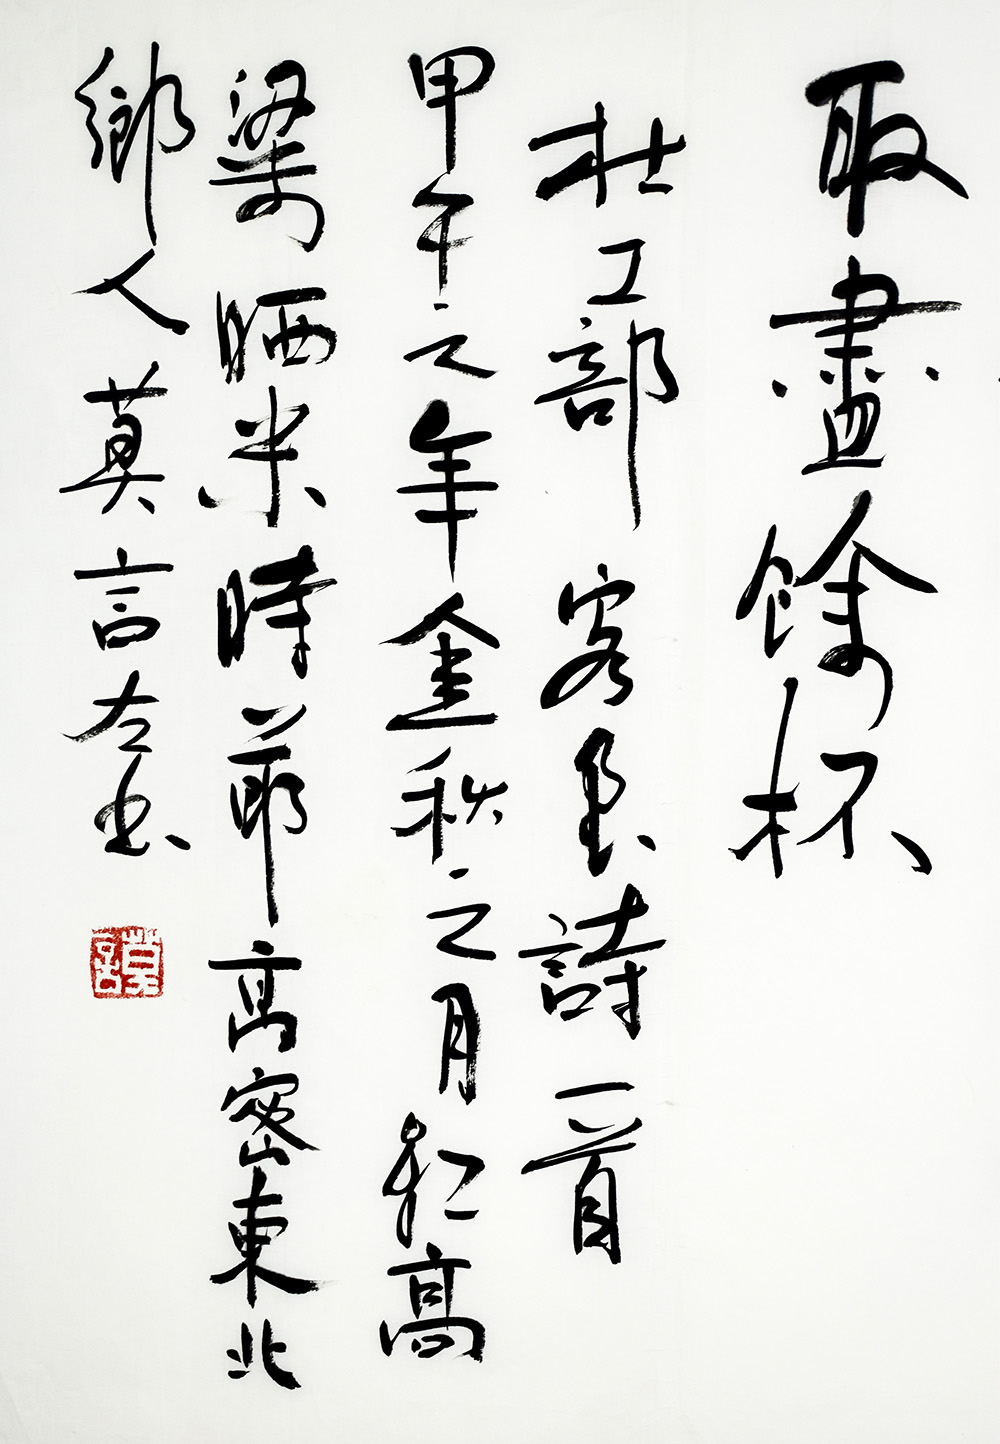 取盡餘杯
杜工部客至詩一首
甲午之年金秋之月紅高
粱晒米時節高密東北
鄉人莫言左書
莫言